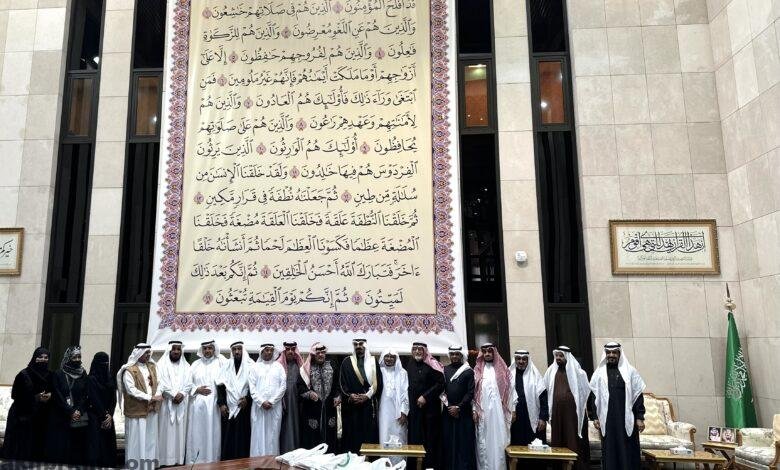 قَدْ أَفْلَحَ ٱلْمُؤْمِنُونَ ۝ ٱلَّذِينَ هُمْ فِى صَلَاتِهِمْ خَٰشِعُونَ ۝
وَٱلَّذِينَ هُمْ عَنِ ٱللَّغْوِ مُعْرِضُونَ ۝ وَٱلَّذِينَ هُمْ لِلزَّكَوٰةِ
فَٰعِلُونَ ۝ وَٱلَّذِينَ هُمْ لِفُرُوجِهِمْ حَٰفِظُونَ ۝ إِلَّا عَلَىٰٓ
أَزْوَٰجِهِمْ أَوْ مَا مَلَكَتْ أَيْمَٰنُهُمْ فَإِنَّهُمْ غَيْرُ مَلُومِينَ ۝ فَمَنِ
ٱبْتَغَىٰ وَرَآءَ ذَٰلِكَ فَأُو۟لَٰٓئِكَ هُمُ ٱلْعَادُونَ ۝ وَٱلَّذِينَ هُمْ
لِأَمَٰنَٰتِهِمْ وَعَهْدِهِمْ رَٰعُونَ ۝ وَٱلَّذِينَ هُمْ عَلَىٰ صَلَوَٰتِهِمْ
يُحَافِظُونَ ۝ أُو۟لَٰٓئِكَ هُمُ ٱلْوَٰرِثُونَ ۝ ٱلَّذِينَ يَرِثُونَ
ٱلْفِرْدَوْسَ هُمْ فِيهَا خَٰلِدُونَ ۝ وَلَقَدْ خَلَقْنَا ٱلْإِنسَٰنَ مِن
سُلَٰلَةٍ مِّن طِينٍ ۝ ثُمَّ جَعَلْنَٰهُ نُطْفَةً فِى قَرَارٍ مَّكِينٍ ۝
ثُمَّ خَلَقْنَا ٱلنُّطْفَةَ عَلَقَةً فَخَلَقْنَا ٱلْعَلَقَةَ مُضْغَةً فَخَلَقْنَا
ٱلْمُضْغَةَ عِظَٰمًا فَكَسَوْنَا ٱلْعِظَٰمَ لَحْمًا ثُمَّ أَنشَأْنَٰهُ خَلْقًا
ءَاخَرَ ۚ فَتَبَارَكَ ٱللَّهُ أَحْسَنُ ٱلْخَٰلِقِينَ ۝ ثُمَّ إِنَّكُم بَعْدَ ذَٰلِكَ
لَمَيِّتُونَ ۝ ثُمَّ إِنَّكُمْ يَوْمَ ٱلْقِيَٰمَةِ تُبْعَثُونَ ۝
إن هذا القرآن يهدي للتي هي أقوم